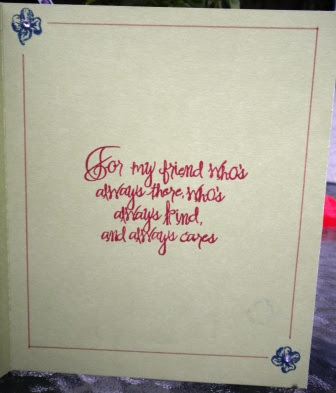 For my friend who's
always there, who's
always kind,
and always cares